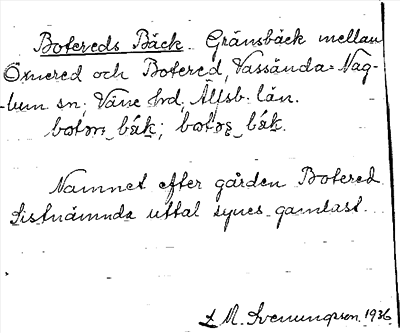 Botereds Bäck. Gränsbäck mellan
Öxnered och Botered, Vassända-Nag-
-lum sn; Väne hd, Älfsb. län.
Namnet efter gården Botered.
Sistnämnda uttal synes gamlast.
L M. Svenungsson 1936